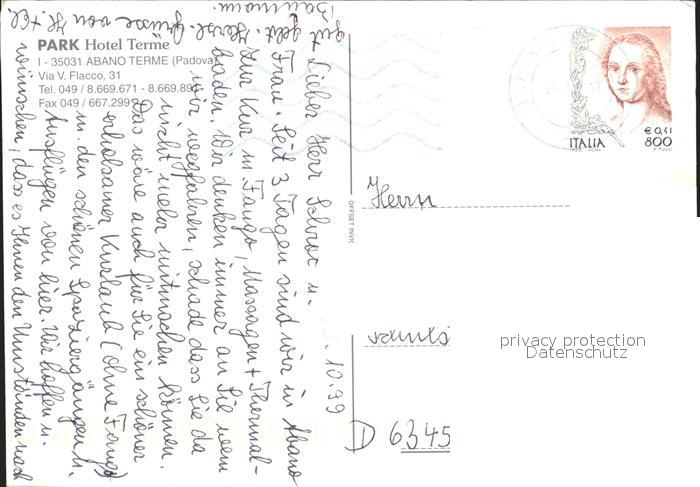 PARK Hotel Terme
I - 35031 ABANO TERME (Padova)
Via V. Flacco, 31
Tel. 049 / 8.669.671 - 8.669.89
Fax 049 / 667.299
.10.99
Lieber Herr Schror u.
Frau. Seit 3 Tagen sind wir in Abano
zur Kur in Fango, Massagen + Thermal-
baden. Wir denken immer an Sie wenn
wir wegfahren, schade dass Sie da
nicht mehr mitmachen können.
Das wäre auch für Sie ein schöner
erholsamer Kurlaub (ohne Fango)
m. den schönen Spaziergängen u.
Ausflügen von hier. Wir hoffen u.
wünschen, dass es Ihnen den Umständen nach
gut geht. Herzl. Grüsse von H. + El.
Baumann.
OFFSET INVR.
ITALIA
€ 0,41
800
Herrn
D 6345
privacy protection
Datenschutz